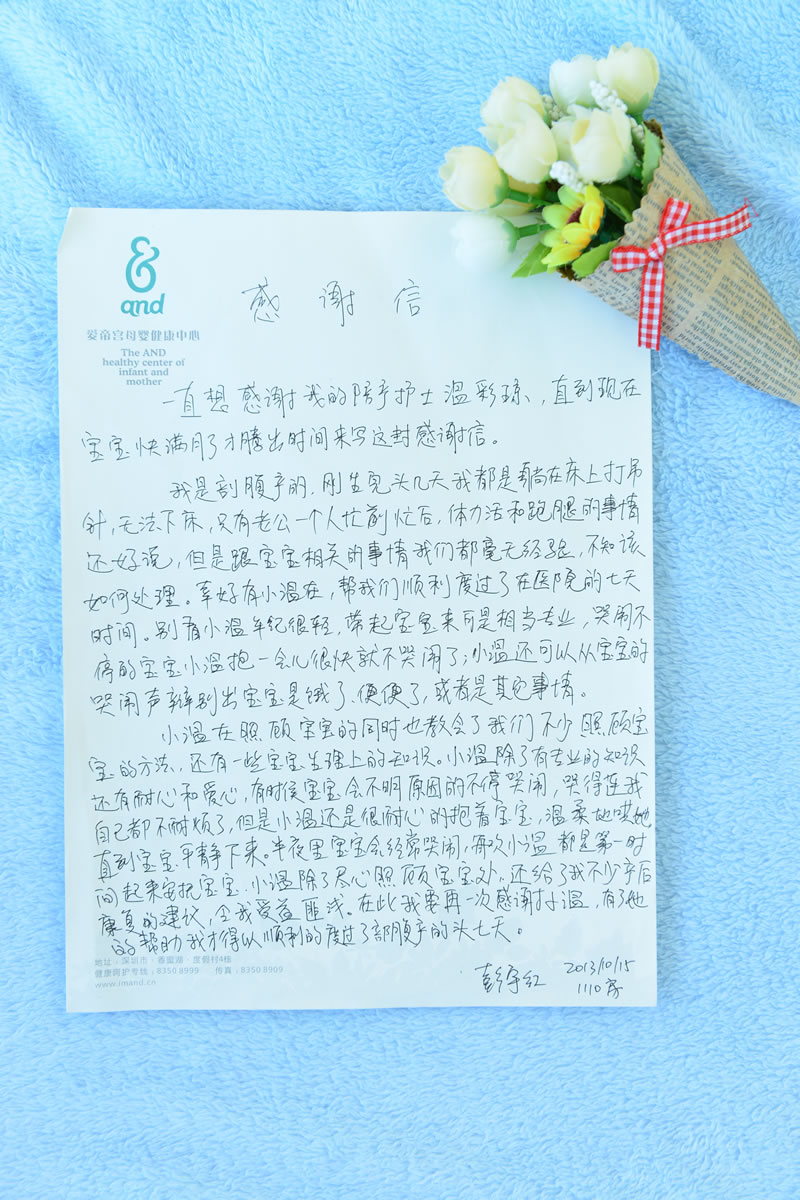 and
爱帝宫母婴健康中心
The AND
healthy center of
infant and
mother
感 谢 信
一直想感谢我的陪产护士温彩琼、直到现在
宝宝快满月了才腾出时间来写这封感谢信。
我是剖腹产的,刚生完头几天我都是躺在床上打吊
针,无法下床,只有老公一个人忙前忙后,体力活和跑腿的事情
还好说,但是跟宝宝相关的事情我们都毫无经验,不知该
如何处理。幸好有小温在,帮我们顺利度过了在医院的七天
时间。别看小温年纪很轻,带起宝宝来可是相当专业,哭闹不
停的宝宝小温抱一会儿很快就不哭闹了;小温还可以从宝宝的
哭闹声辩别出宝宝是饿了、便便了,或者是其它事情。
小温在照顾宝宝的同时也教会了我们不少照顾宝
宝的方法,还有一些宝宝生理上的知识。小温除了有专业的知识
还有耐心和爱心,有时侯宝宝会不明原因的不停哭闹,哭得连我
自己都不耐烦了,但是小温还是很耐心的抱着宝宝,温柔地哄她
直到宝宝平静下来。半夜里宝宝会经常哭闹,每次小温都是第一时
间起来安抚宝宝。小温除了尽心照顾宝宝外,还给了我不少产后
康复的建议,令我受益匪浅。在此我要再一次感谢小温,有了她
的帮助我才得以顺利的度过了剖腹产的头七天。
地址:深圳市·香蜜湖·度假村4栋
健康呵护专线:8350 8999 传真:8350 8909
www.imand.cn
2013/10/15
1110房